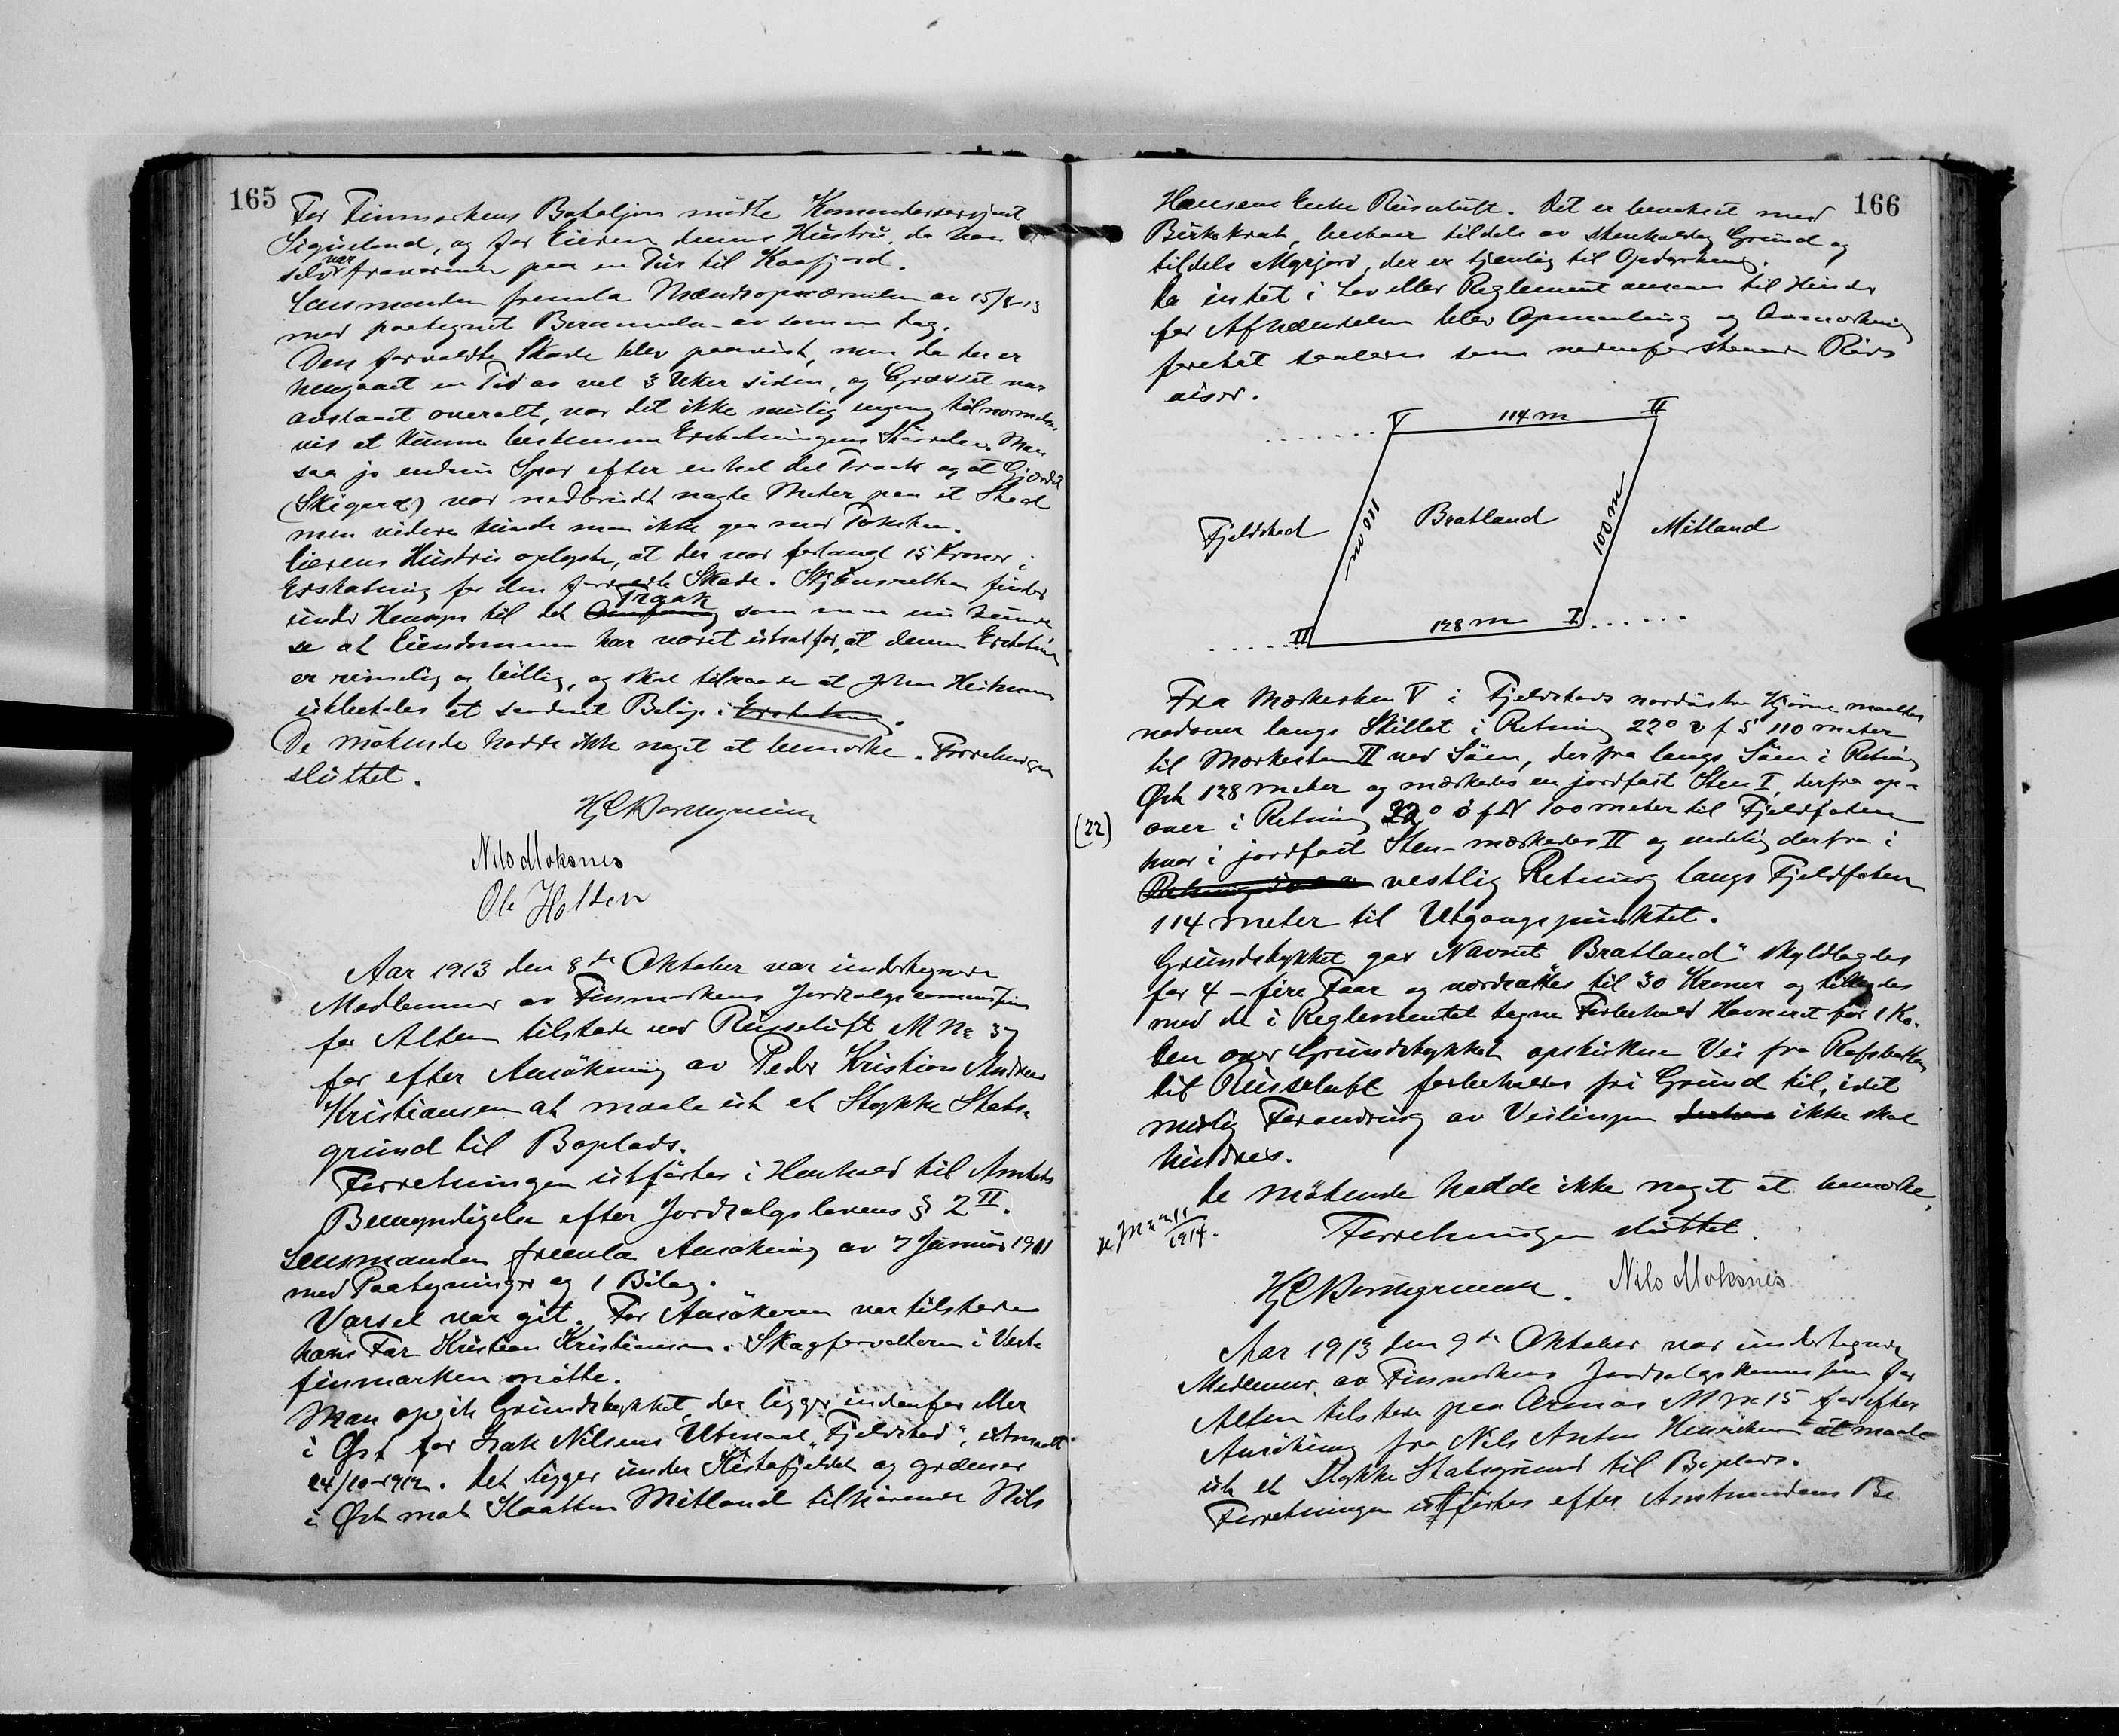 165
For Finmarkens Bataljon mødte Komandersersjant
Sigusland, og for Eieren dennes Hustru, da han
selv var fraværende paa en Tur til Kaafjord.
Lensmanden fremla Mændsopnævnelse av 15/8-13
med paategnet Berammelse av samme Dag.
Den forvoldte Skade blev paavist, men da der er
hengaaet en Tid av vel 3 Uker siden, og Græsset var
avslaaet overalt, var det ikke mulig engang tilnærmelses
vis at kunne bestemme Erstatningens Størrelse. Man
saa jo endnu Spor efter en hel del Traak og at Gjærdet
(Skigard) var nedbrudt nogle Meter paa et Sted
men videre kunde man ikke gaa med Taksten.
Eierens Hustru oplyste, at der var forlangt 15 Kroner i
Erstatning for den forvoldte Skade. Skjønsretten finder
under Hensyn til det Traak som man nu kunde
se at Eiendommen har været utsat for, at denne Erstatning
er rimelig og billig, og skal tilraade at Johan Heitmann
utbetales et saadant Beløp i Erstatning.
De møtende hadde ikke noget at bemærke. Forretningen
sluttet.
Nils Moksnes
Ole Holten
Aar 1913 den 8de Oktober var undertegnede
Medlemmer av Finmarkens Jordsalgscommission
for Alten tilstede ved Russeluft M No 37
for efter Ansøkning av Peder Kristian Andreas
Kristiansen at maale ut et Stykke Stats-
grund til Boplads.
Forretningen utførtes i Henhold til Amtets
Bemyndigelse efter Jordsalgslovens § 2 II.
Lensmanden fremla Ansøkning av 7 Januar 1911
med Paategninger og 1 Bilag.
Varsel var git. For Ansøkeren var tilstede
hans Far Kristian Kristiansen. Skogforvalteren i Vest-
finmarken møtte.
Man opgik Grundstykket, der ligger indenfor eller
i Øst for Isak Nilsens Utmaal „Fjeldstad“, utmaalt
24/10-1912. Det ligger under Kistefjeldet og grænser
i Øst mot Slaatten Mitland tilhørende Nils
166
Hansens Enke Russeluft. Det er bevokset med
Birkekrat, bestaar tildels av stenholdig Grund og
tildels Myrjord, der er tjenlig til Opdyrkning.
Da intet i Lov eller Reglement ansees til Hinder
for Afhændelsen blev Opmaaling og Avmerkning
foretat saaledes som nedenforstaaende Rids
viser.
V 114 m II
Fjeldstad 110 m Bratland 100 m Mitland
II 128 m I
Fra Merkesten V i Fjeldstads nordøstre Hjørne maaltes
nedover langs Skillet i Retning 22° v f S 110 meter
til Merkesten II ved Søen, derfra langs Søen i Retning
Øst 128 meter og merkedes en jordfast Sten I, derfra op-
(22)
over i Retning 22° ø f N 100 meter til Fjeldfoten
hvor i jordfast Sten merkedes II og endelig derfra i
vestlig Retning langs Fjeldfoten
114 meter til Utgangspunktet.
Grundstykket gav Navnet „Bratland“ skyldlagdes
for 4 - fire Faar og værdsattes til 30 Kroner og tillagdes
med de i Reglementet tagne Forbehold Havneret for 1 Ko.
Den over Grundstykket opstukne Vei fra Rafsbotten
til Russeluft forbeholdes fri Grund til, idet
mulig Forandring av Veilinjen ikke skal
hindres.
De møtende hadde ikke noget at bemerke.
1914.
Forretningen sluttet.
Nils Moksnes
Aar 1913 den 9de Oktober var undertegnede
Medlemmer av Finmarkens Jordsalgskommission for
Alten tilstede paa Aronæs M No 15 for efter
Ansøkning fra Nils Anton Henriksen at maale
ut et Stykke Statsgrund til Boplads.
Forretningen utførtes efter Amtmandens Be